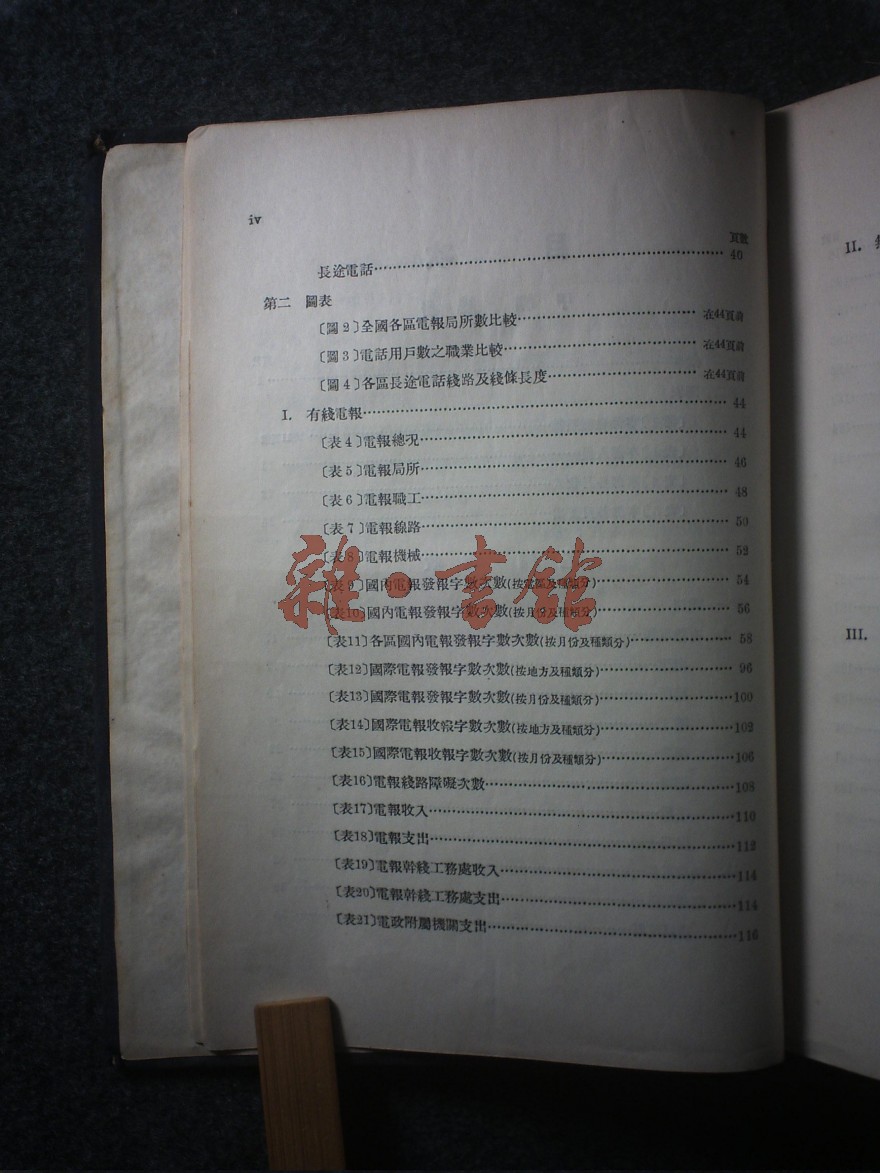 iv
頁數
長途電話…………40
第二 圖表
〔圖2〕全國各區電報局所數比較…………在44頁前
〔圖3〕電話用戶數之職業比較…………在44頁前
〔圖4〕各區長途電話綫路及綫條長度…………在44頁前
I. 有綫電報…………44
〔表4〕電報總况…………44
〔表5〕電報局所…………46
〔表6〕電報職工…………48
〔表7〕電報線路…………50
〔表8〕電報機械…………52
〔表9〕國內電報發報字數次數(按電區及種類分)…………54
〔表10〕國內電報發報字數次數(按月份及種類分)…………56
〔表11〕各區國內電報發報字數次數(按月份及種類分)…………58
〔表12〕國際電報發報字數次數(按地方及種類分)…………96
〔表13〕國際電報發報字數次數(按月份及種類分)…………100
〔表14〕國際電報收報字數次數(按地方及種類分)…………102
〔表15〕國際電報收報字數次數(按月份及種類分)…………106
〔表16〕電報綫路障礙次數…………108
〔表17〕電報收入…………110
〔表18〕電報支出…………112
〔表19〕電報幹綫工務處收入…………114
〔表20〕電報幹綫工務處支出…………114
〔表21〕電政附屬機關支出…………116
雜·書館
II.
III.